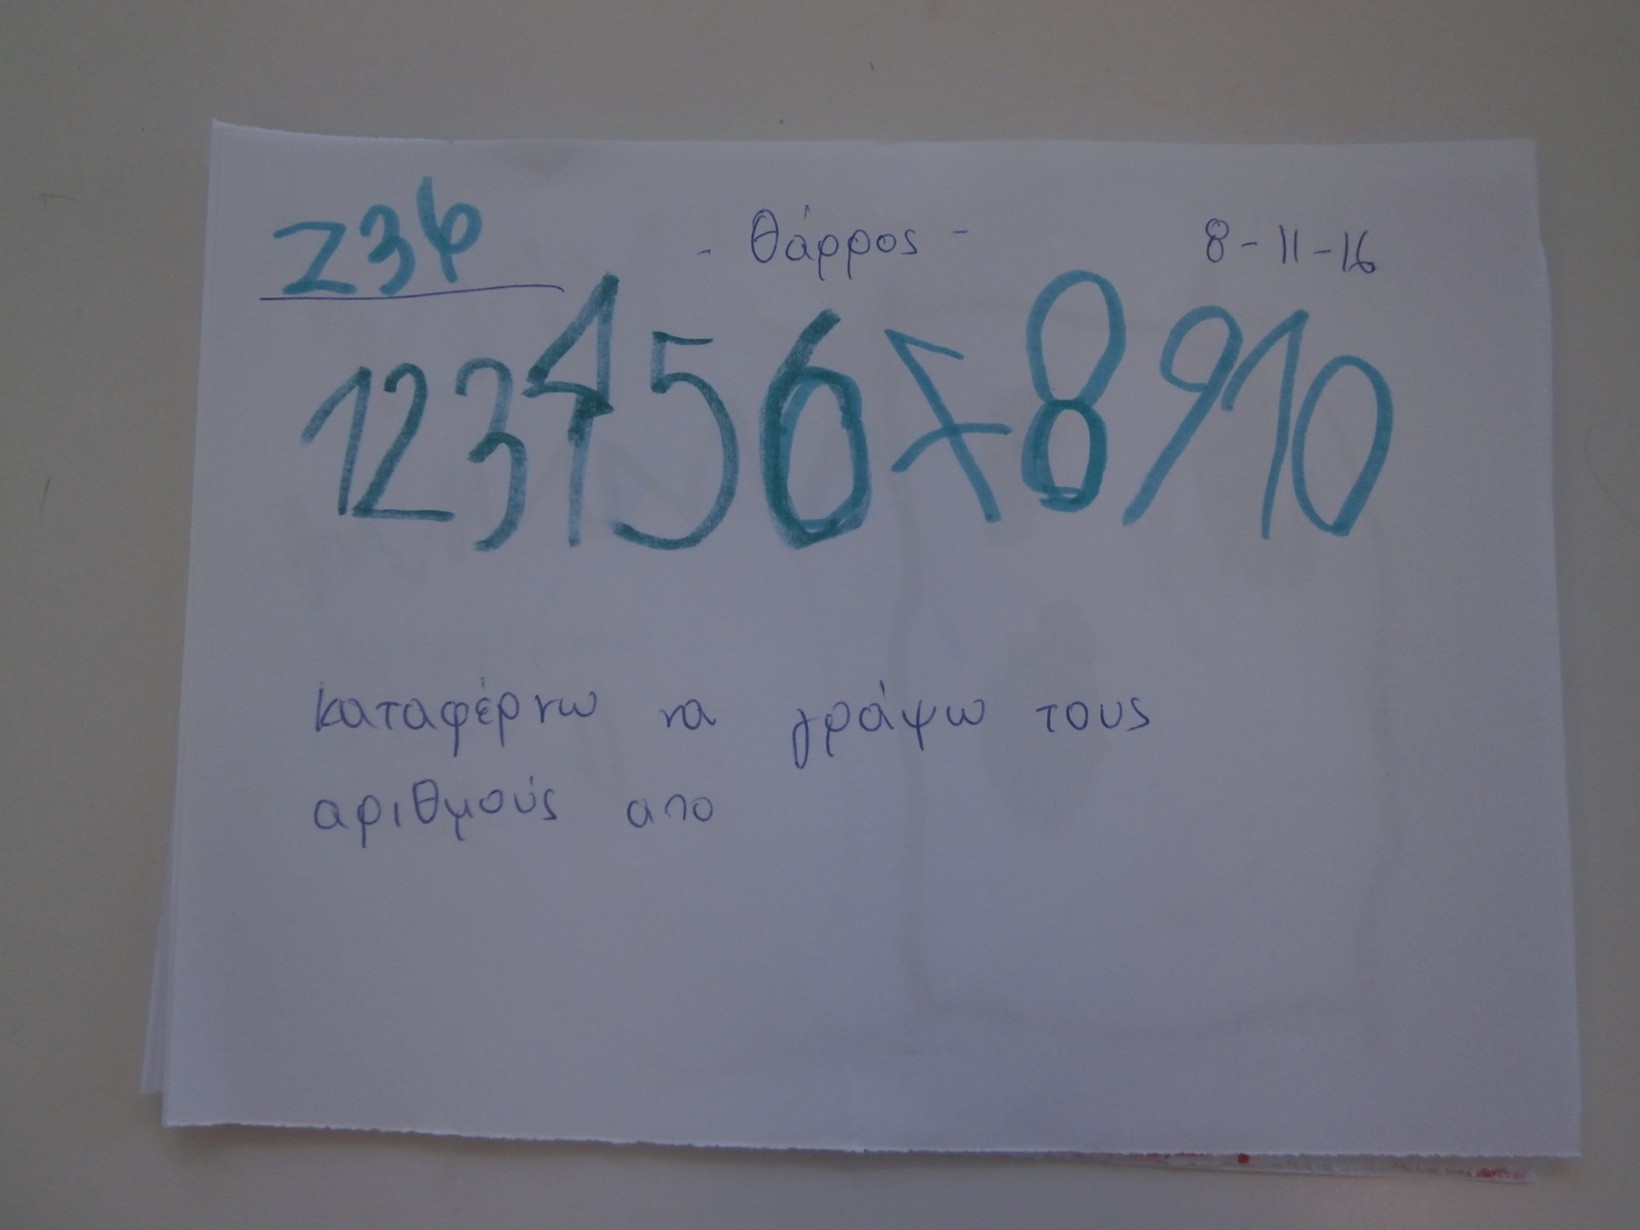 Ζ3φ - θάρρος - 8-11-16
1 2 3 4 5 6 7 8 9 10
καταφέρνω να γράψω τους
αριθμούς απο